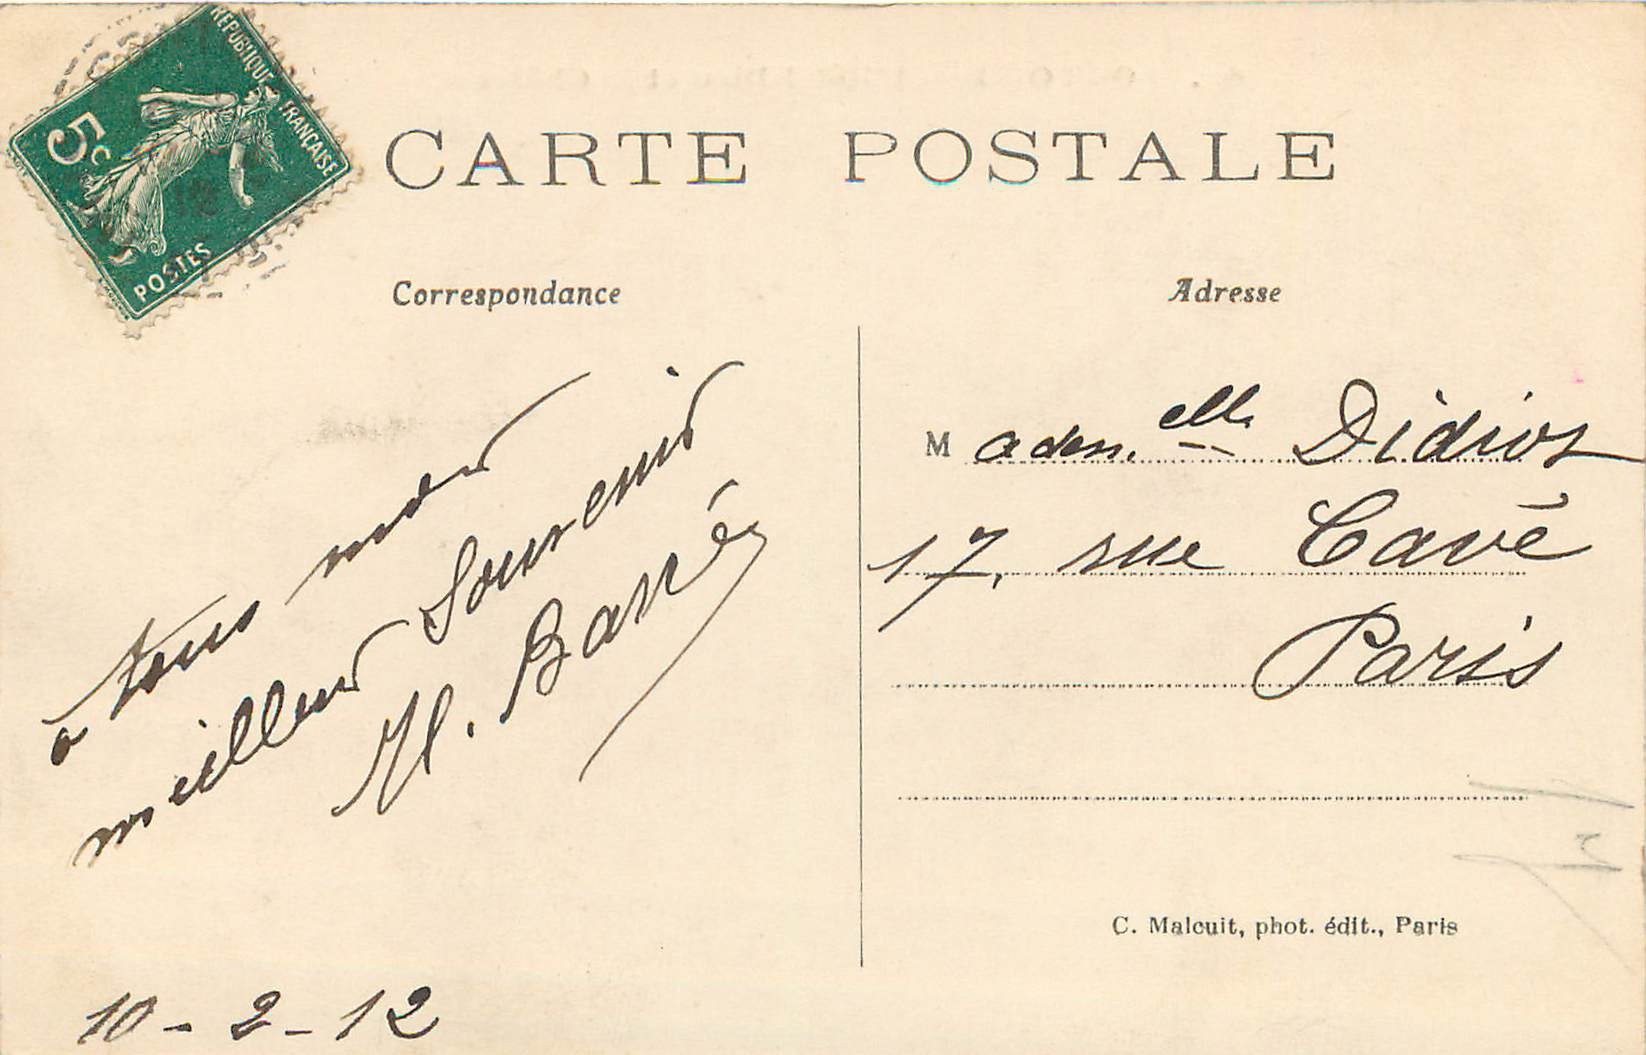 REPUBLIQUE FRANÇAISE
5c
POSTES
CARTE POSTALE
Correspondance
Adresse
a tous mon
meilleur Souvenir
H. Barré
10 - 2 - 12
Madem.elle
17, rue Cavé
Paris
C. Malcuit, phot. édit., Paris